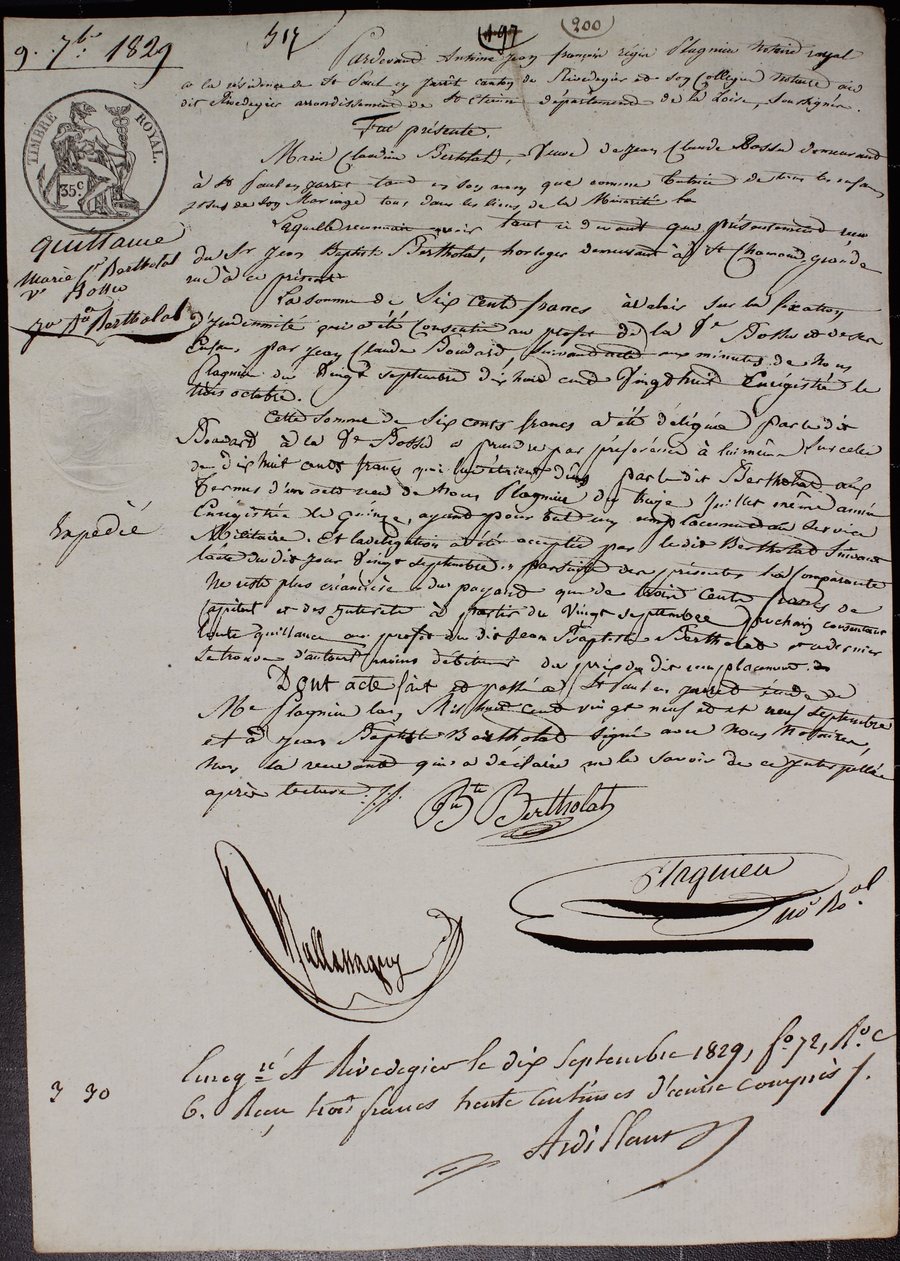 9. 7bre 1829
317
197
200
TIMBRE ROYAL.
35c
Quittance
Marie Cne Bertholat
ve Bossu
Jn Bte Bertholat
Expédié
Pardevant Antoine Jean françois régis Flagnieu Notaire royal
à la résidence de St Paul en Jarêt canton de Rivedegier et son Collègue Notaire au
dit Rivedegier arrondissement de St Etienne département de la Loire, Soussignés.
Fut présente.
Marie Claudine Bertholat, Veuve de Jean Claude Bossu demeurant
à St Paul en jarret tant en son nom que comme tutrice de tous les enfans
de son Mariage tous dans les liens de la Minorité
Laquelle reconnait avoir tant ci devant que présentement reçu
du Sr Jean Baptiste Bertholat, horloger demeurant à St Chamond, grande
rue à ce présent
La somme de Six Cents francs à valoir sur la fixation
d'indemnité qui a été Consentie au profit de la Ve Bossu et de ses
Enfans par Jean Claude Bouard, Suivant acte aux minutes de Nous
Flagnieu du Vingt septembre dix huit cent Vingt huit Enregistré le
trois octobre.
Cette Somme de Six cents francs a été déléguée par le dit
Bouard à la Ve Bossu à prendre par préférence à lui même Sur celle
de dix huit cents francs qui lui étaient dûs par le dit Bertholat aux
termes d'un acte reçu de Nous Flagnieu du treize Juillet même année
Enregistré le quinze, ayant pour but un remplacement au Service
Militaire. Et la délégation a été acceptée par le dit Bertholat Suivant
l'acte du dit jour Vingt septembre. partant des présentes la Comparante
Ne reste plus créancière du payant que de trois Cents francs de
Capital et des Intérêts à partir du Vingt septembre prochain consentant
toute quittance au profit du dit Jean Baptiste Bertholat et ce dernier
se trouve d'autant moins débiteur du prix du dit remplacement.
Dont acte fait et passé à St Paul en jarret étude de
Me Flagnieu l'an Mil huit cent vingt neuf et le neuf septembre
et a Jean Baptiste Bertholat signé avec Nous Notaires,
Non la recevante qui a déclaré ne le savoir de ce Interpellée
après lecture.
Bte Bertholat
Flagnieu
No Roal
Enregré A Rivedegier le dix Septembre 1829, fo 72, Ro C
6. Reçu trois francs trente Centimes d'écime compris
3 30